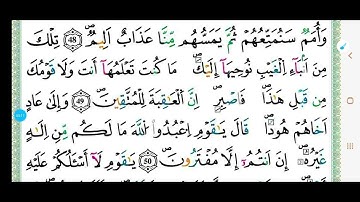 وَأُمَمٌ سَنُمَتِّعُهُمْ ثُمَّ يَمَسُّهُمْ مِّنَّا عَذَابٌ اَلِيْمٌ ﴿48﴾ تِلْكَ
مِنْ اَنْۢبَآءِ الْغَيْبِ نُوْحِيْهَاۤ اِلَيْكَ ۚ مَا كُنْتَ تَعْلَمُهَاۤ اَنْتَ وَلَا قَوْمُكَ
مِنْ قَبْلِ هٰذَا ۛؕ فَاصْبِرْ ۛؕ اِنَّ الْعَاقِبَةَ لِلْمُتَّقِيْنَ ﴿49﴾ وَاِلٰى عَادٍ
اَخَاهُمْ هُوْدًا ؕ قَالَ يٰقَوْمِ اعْبُدُوا اللّٰهَ مَا لَكُمْ مِّنْ اِلٰهٍ
غَيْرُهٗ ؕ اِنْ اَنْتُمْ اِلَّا مُفْتَرُوْنَ ﴿50﴾ يٰقَوْمِ لَاۤ اَسْئَلُكُمْ عَلَيْهِ